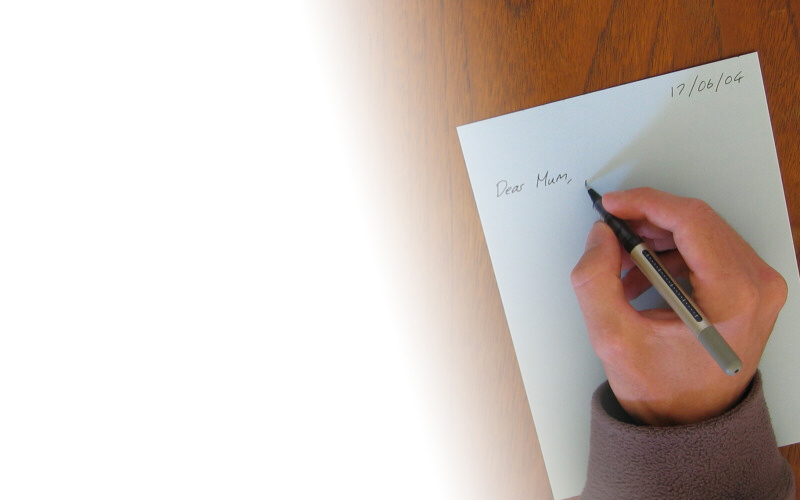 17/06/04
Dear Mum,